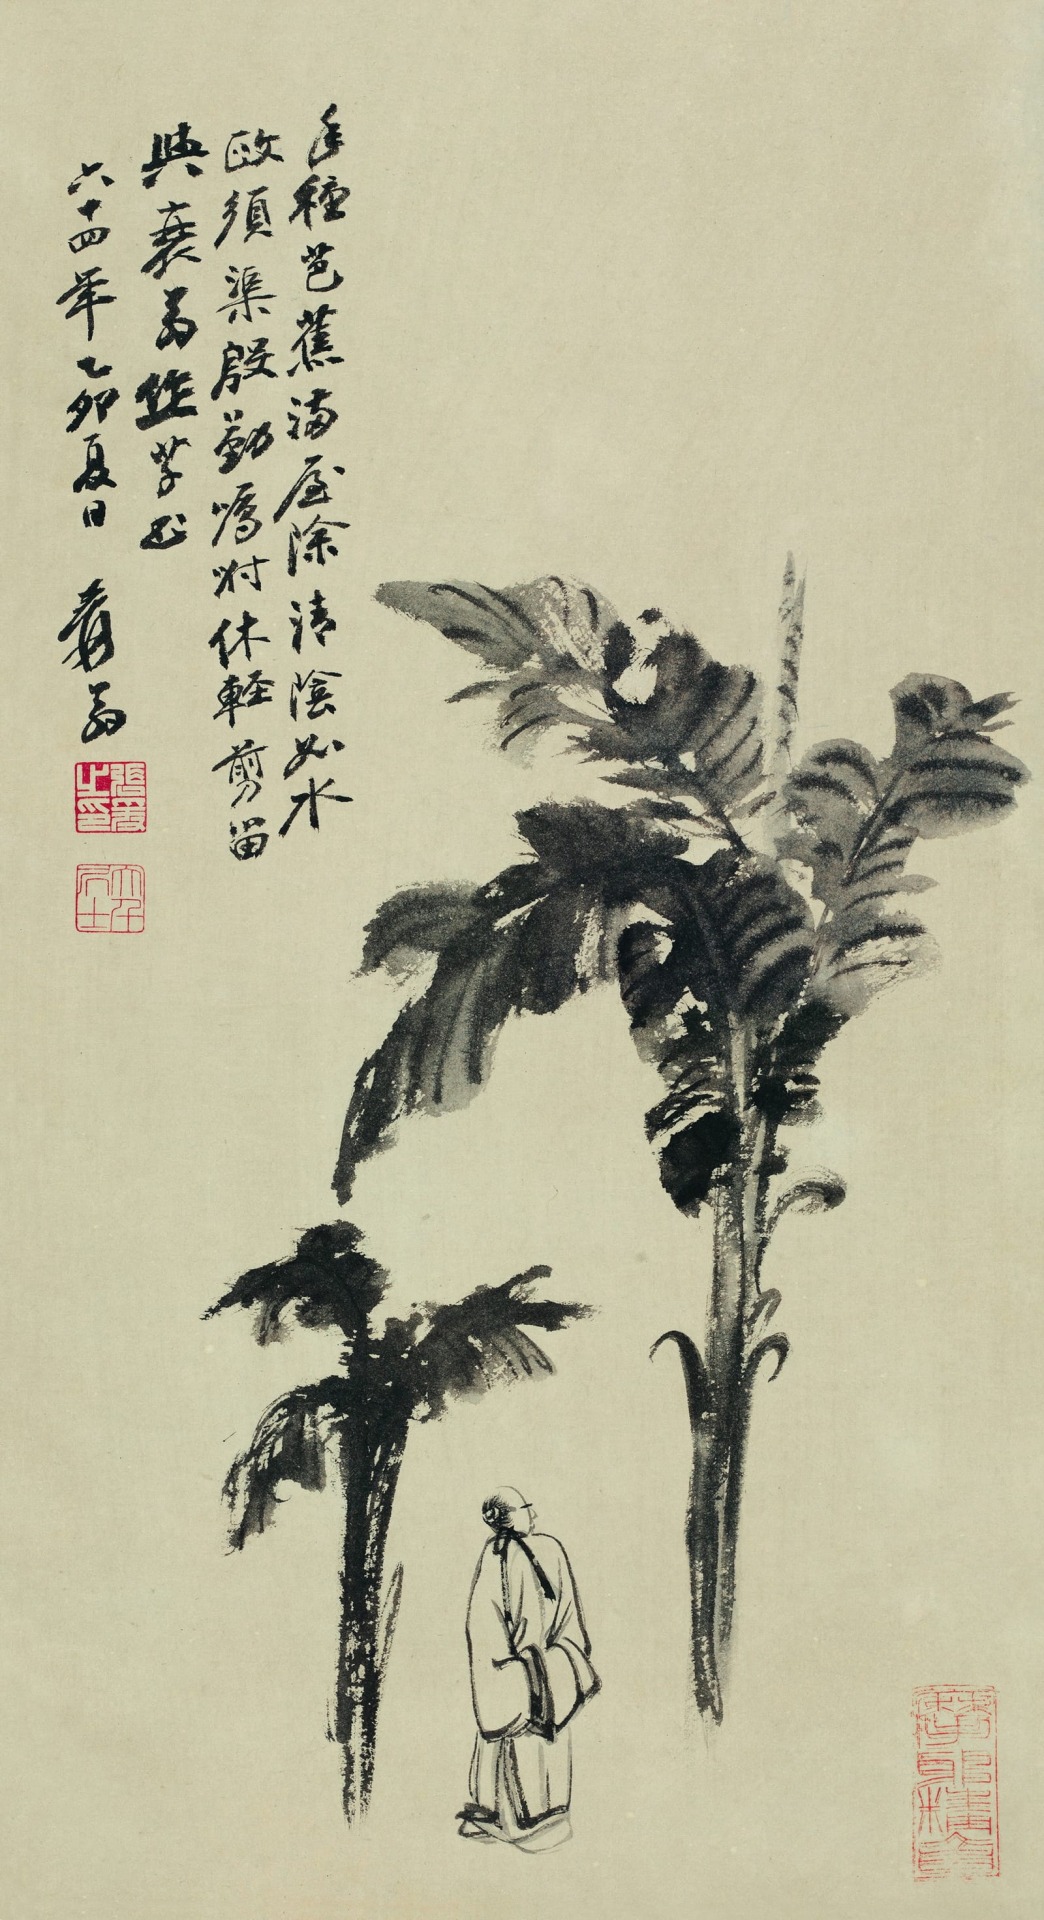 手種芭蕉滿屋除清陰如水
政須渠殷勤囑咐休輕剪留
與衰翁作草書
六十四年乙卯夏日 爰翁
張爰之印
大千居士